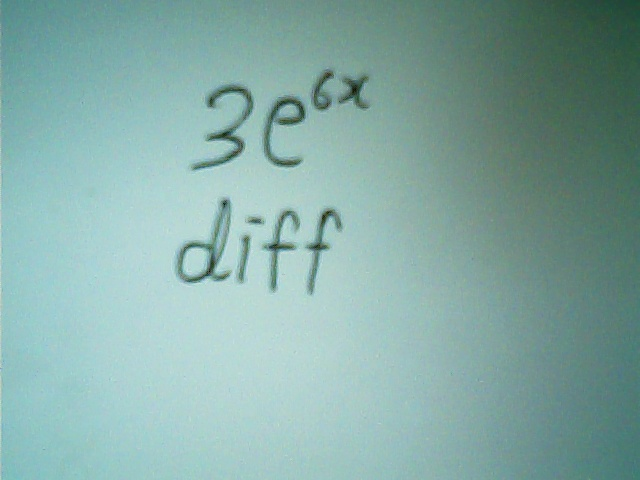 3e^{6x}
diff